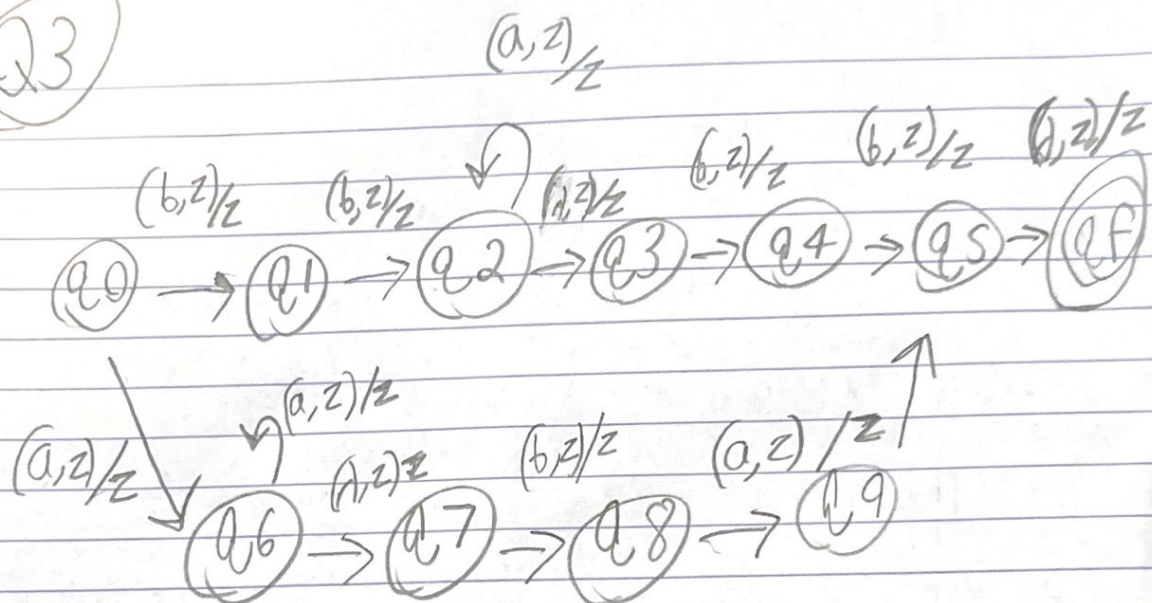 Q3
(a,z)/z
(b,z)/z (b,z)/z (λ,z)/z (b,z)/z (b,z)/z (λ,z)/z
q0 q1 q2 q3 q4 q5 qf
(a,z)/z (a,z)/z (λ,z)z (b,z)/z (a,z)/z
q6 q7 q8 q9